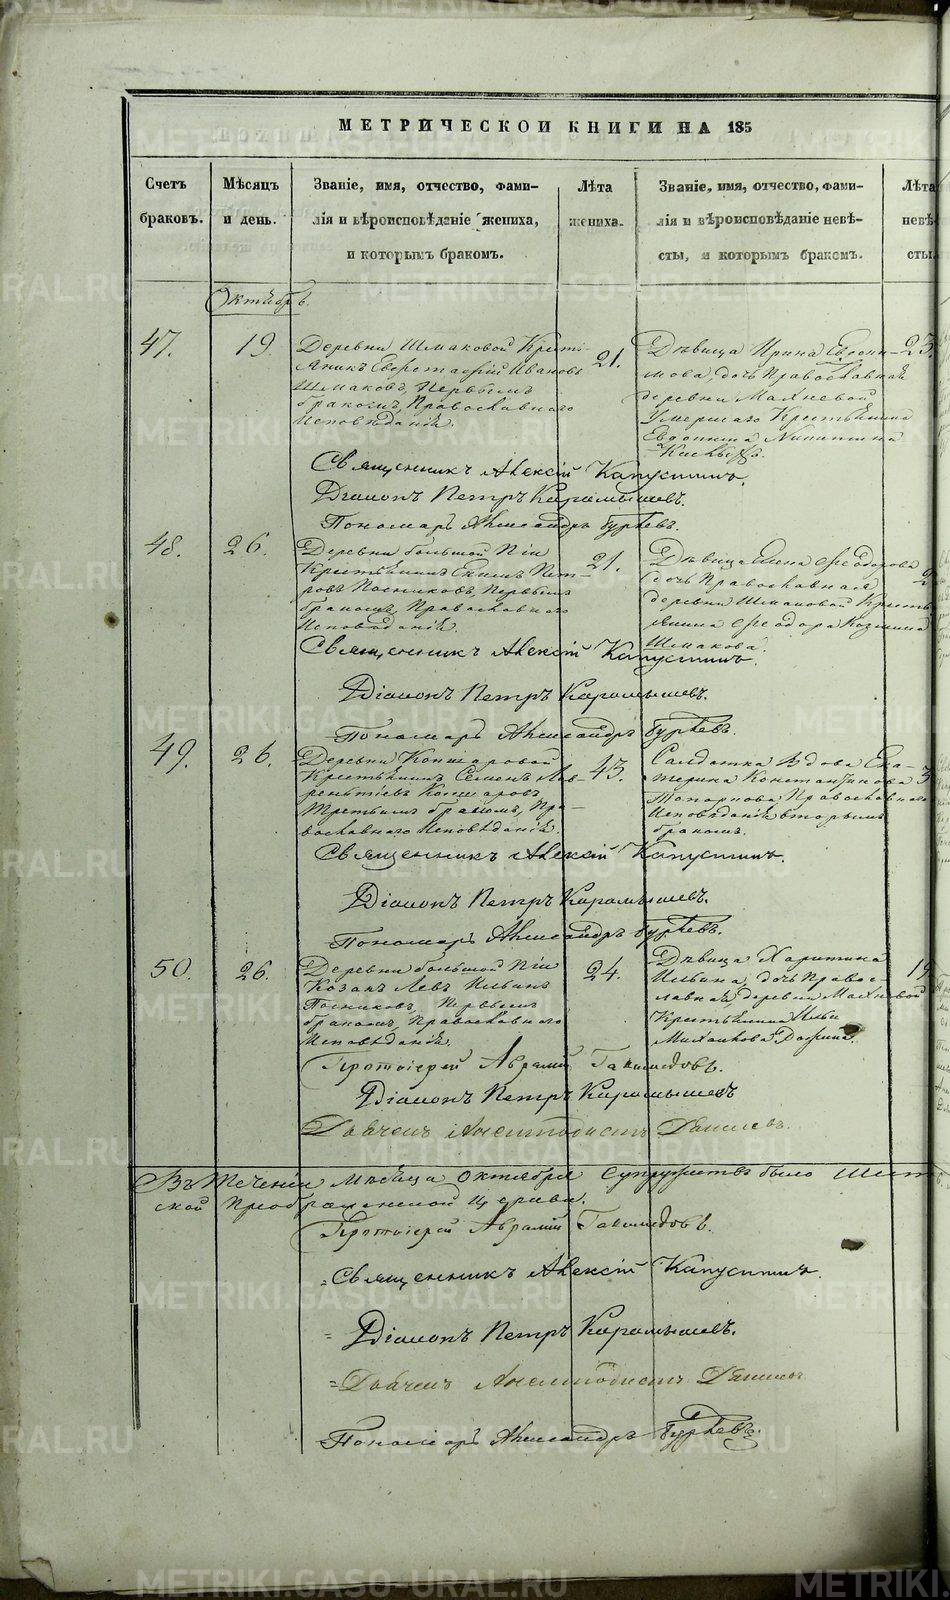 МЕТРИЧЕСКОЙ КНИГИ НА 185
Счетъ браковъ.
Мѣсяцъ и день.
Званіе, имя, отчество, фами-
лія и вѣроисповѣданіе жениха,
и которымъ бракомъ.
Лѣта жениха.
Званіе, имя, отчество, фами-
лія и вѣроисповѣданіе невѣ-
сты, и которымъ бракомъ.
Лѣта
невѣ-
сты
Октябрь
47.
19
Деревни Шмаковой Кресть-
янинъ Евстафій Ивановъ
Шмаковъ, Первымъ
бракомъ, Православнаго
Исповѣданія.
21.
Дѣвица Ирина Евдоки-
мова, дочь Православная
деревни Махневой
Умершаго Крестьянина
Евдокима Никитина
23
Священникъ Алексій Капустинъ.
Діаконъ Петръ Карамышевъ.
Пономарь Александръ
48.
26.
Деревни большой Ніи
Крестьянинъ Екимъ Пет-
ровъ Постниковъ, Первымъ
бракомъ, Православнаго
Исповѣданія.
21.
Дѣвица Елена Феодорова
дочь Православная
деревни Шмаковой Кресть-
янина Феодора Козмина
Шмакова.
2
Священникъ Алексій Капустинъ.
Діаконъ Петръ Карамышевъ.
Пономарь Александръ
49.
26.
Деревни Кокшаровой
Крестьянинъ Семенъ Лав-
рентіевъ Кокшаровъ,
Третьимъ бракомъ, Пра-
вославнаго Исповѣданія.
43.
Солдатка Вдова Ека-
терина Константинова
Топоркова Православнаго
Исповѣданія вторымъ
бракомъ.
3
Священникъ Алексій Капустинъ.
Діаконъ Петръ Карамышевъ.
Пономарь Александръ
50.
26.
Деревни большой Ніи
Козакъ Левъ Ильинъ
Постниковъ, Первымъ
бракомъ, Православнаго
Исповѣданія.
24.
Дѣвица Харитина
Ильина, дочь Право-
славная, деревни Махневой
Крестьянина Ильи
Михайлова
19
Протоіерей Аврамій
Діаконъ Петръ Карамышевъ
Дьячекъ Данилевъ.
Въ теченіи Мѣсяца Октября Супружествъ было Шест
ской Преображенской Церкви.
Протоіерей Аврамій
Священникъ Алексій Капустинъ.
Діаконъ Петръ Карамышевъ.
Дьячекъ
Пономарь Александръ
METRIKI.GASO-URAL.RU